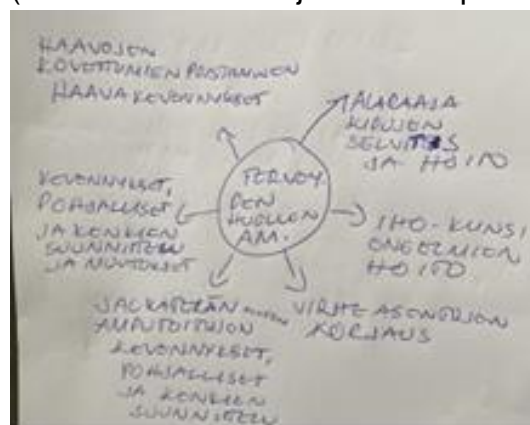 HAAVOJEN
KOVETTUMIEN POISTAMINEN
HAAVAKEVENNYKSET
ALARAAJA
KIPUJEN
SELVITYS
JA HOITO
TERVEY
DEN
HUOLLON
AM.
KEVENNYKSET,
POHJALLISET
JA KENKIEN
SUUNNITTELU
JA MUUTOKSET
IHO-KYNSI
ONGELMIEN
HOITO
JALKATERÄN
AMPUTOITUJEN
KEVENNYKSET,
POHJALLISET
JA KENKIEN
SUUNNITTELU
VIRHEASENTOJEN
KORJAUS